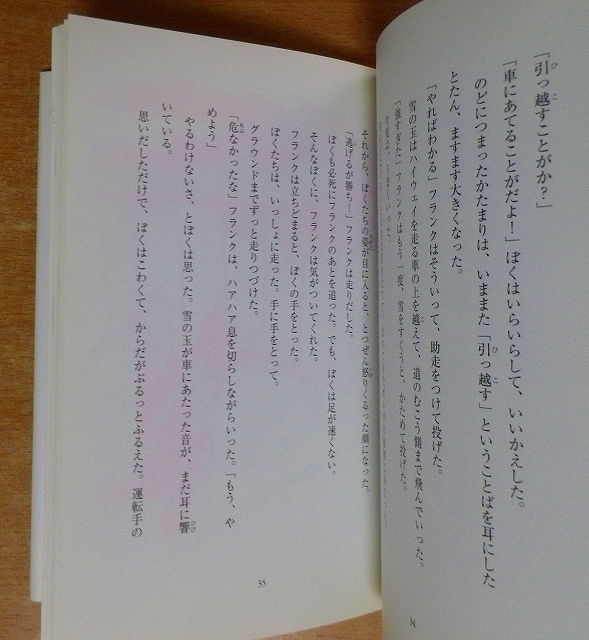 「引っ越すことがか？」
「車にあてることがだよ！」ぼくはいらいらして、いいかえした。
のどにつまったかたまりは、いままた「引っ越す」ということばを耳にした
とたん、ますます大きくなった。
「やればわかる」フランクはそういって、助走をつけて投げた。
雪の玉はハイウェイを走る車の上を越えて、道のむこう側まで飛んでいった。
「強すぎた」フランクはもう一度、雪をすくうと、かためて投げた。
今度は、うまくいった。
34
それから、ぼくたちの姿が目に入ると、とつぜん怒りくるった顔になった。
「逃げるが勝ち！」フランクは走りだした。
ぼくも必死にフランクのあとを追った。でも、ぼくは足が速くない。
そんなぼくに、フランクは気がついてくれた。
フランクは立ちどまると、ぼくの手をとった。
ぼくたちは、いっしょに走った。手に手をとって。
グラウンドまでずっと走りつづけた。
「危なかったな」フランクは、ハアハア息を切らしながらいった。「もう、や
めよう」
やるわけないさ、とぼくは思った。雪の玉が車にあたった音が、まだ耳に響
いている。
思いだしただけで、ぼくはこわくて、からだがぶるっとふるえた。運転手の
35